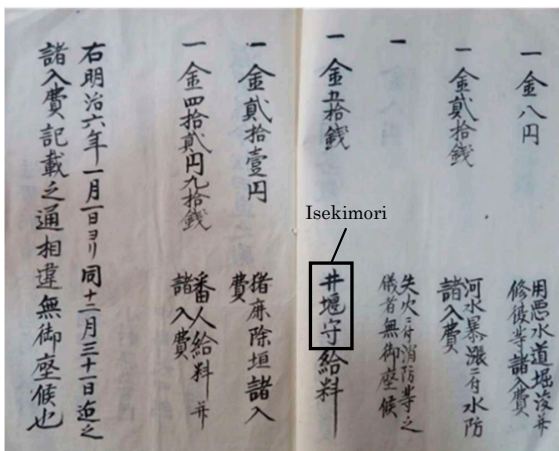 一金八円
用悪水道堀浚并
修復等諸入費
一金貳拾銭
河水暴漲ニ付水防
諸入費
一
失火ニ付消防等之
儀者無御座候
Isekimori
一金五拾銭
井堰守給料
一金貳拾壹円
猪鹿除垣諸入
費
一金四拾貳円九拾銭
番人給料并
諸入費
右明治六年一月一日ヨリ同十二月三十一日迄之
諸入費記載之通相違無御座候也